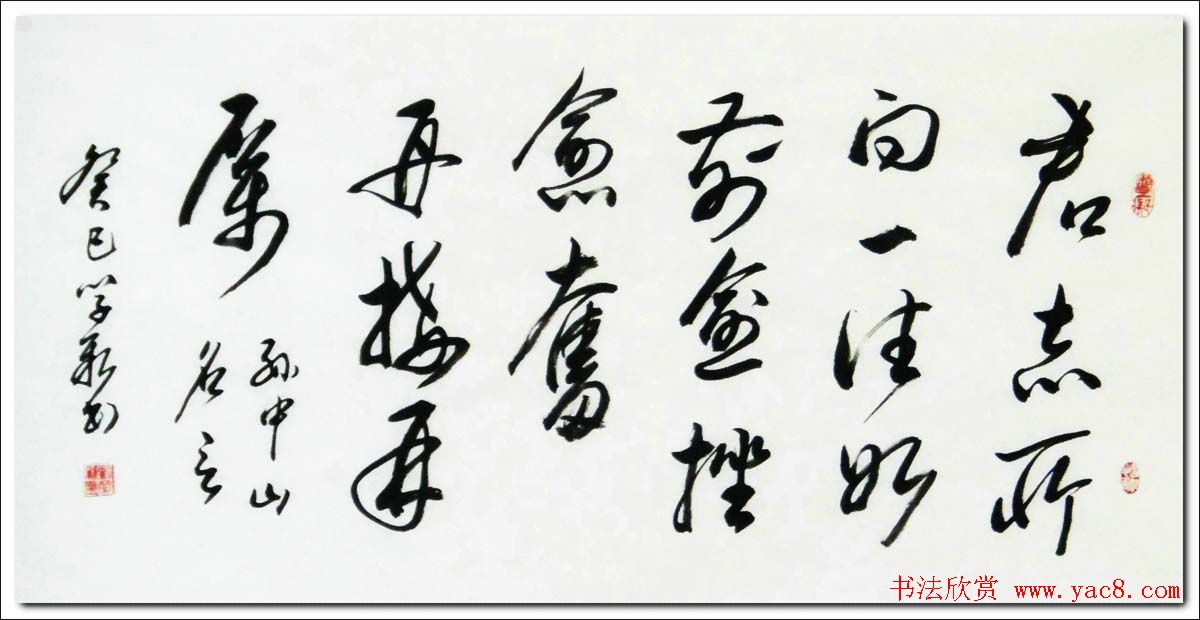 君志所
向一往
前愈挫
愈奮
再接再
厲
孫中山
名言
癸巳学书
书法欣赏 www.yac8.com